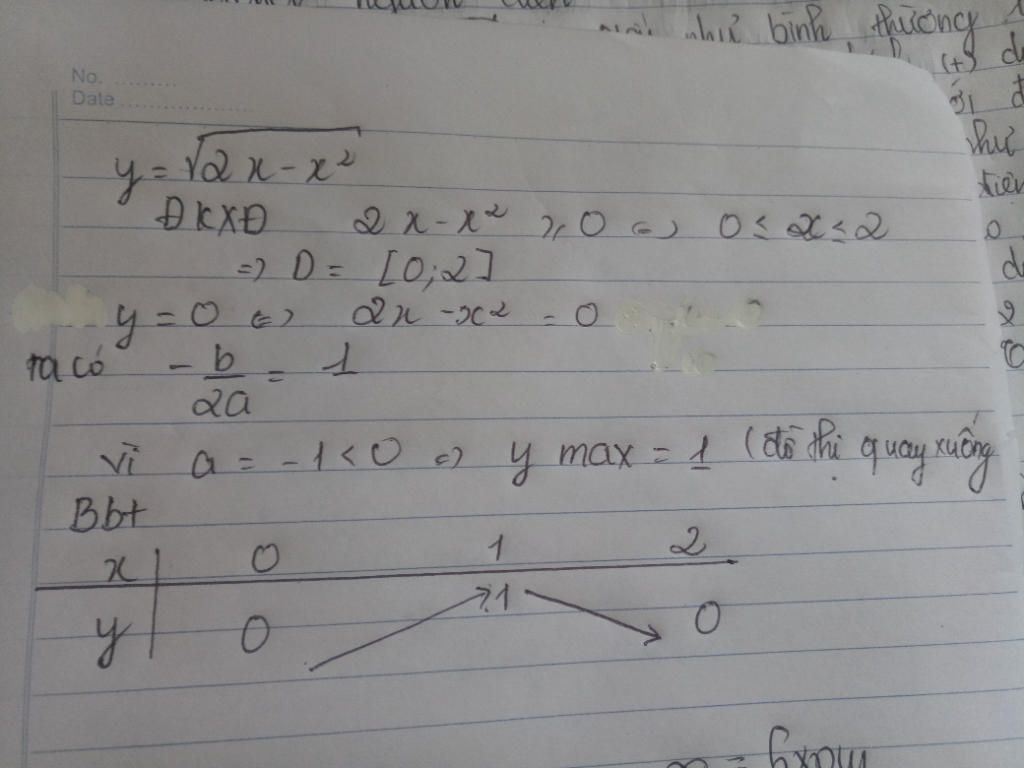 nguồn
như bình thường
(+) d
No. ..........
Date ......................
y = √2x - x²
ĐKXĐ 2x - x² ≥ 0 <=> 0 ≤ x ≤ 2
=> D = [0;2]
y = 0 <=> 2x - x² = 0
ta có - b/2a = 1
vì a = -1 < 0 => y max = 1 (đồ thị quay xuống
Bbt
x 0 1 2
y 0 1 0